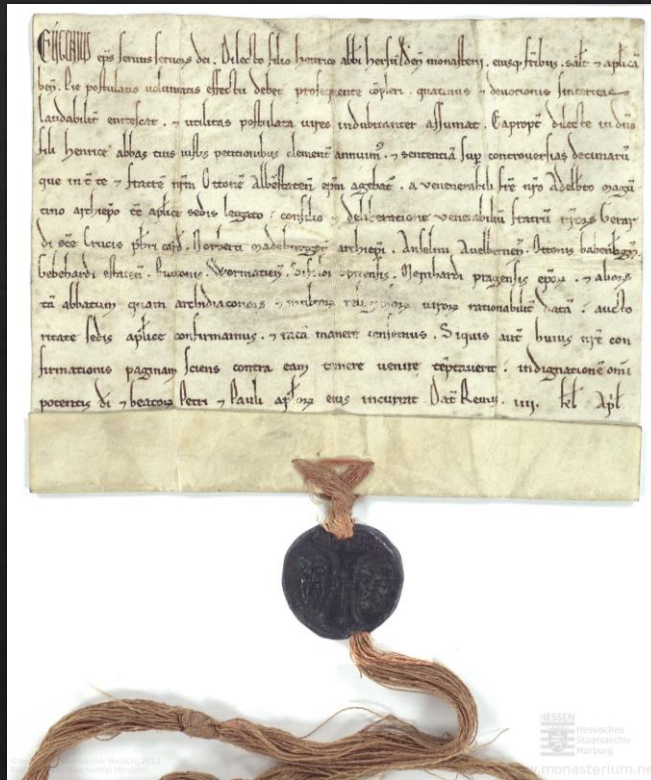 EUGENIUS ep̄s seruus seruoꝝ dei . Dilecto filio henrico abb̄i monasterij . eiusq; fr̄ibus . sal̄t ⁊ ap̄licā
ben̄ . Pie postulatio uoluntatis effectu debet prosequente cōpleri . quatinus ⁊ deuotionis sinceritas
laudabilit̄ enitescat . ⁊ utilitas postulata uires indubitanter assumat . Eaprop̄t dilecte in dn̄o
fili henrice abbas tuis iustis petitionibus clement̄ annuim⁹ . ⁊ sententiā sup̄ controuersias decimarū
que int̄ te ⁊ fratrē nr̄m Ottonē ep̄m agebat̄ . a uenenerabili fr̄e nr̄o Adelb̄to magū
tino archiep̄o t̄c ap̄lice sedis legato ; consilio ⁊ deliberatione uenerabiliū fratrū nr̄oꝝ Gerar
di sc̄e Crucis p̄br̄i card̄ . Norberti archiep̄i . Anselmi Auelbernen̄ . Ottonis
Bucconis . Wormatien̄ . Meinhardi pragensis ep̄oꝝ . ⁊ alioꝝ
tā abbatum quam archidiaconoꝝ ⁊ uiroꝝ rationabilit̄ datā ; aucto
ritate sedis ap̄lice confirmamus . ⁊ ratā manere censemus . Siquis aut̄ huius nr̄e con
firmationis paginam sciens contra eam temere uenire tēptauerit ; indignationē om̄i
potentis dī ⁊ beatoꝝ Petri ⁊ Pauli ap̄loꝝ eius incurrat Dat̄ Remis . iiij . kl̄ Ap̄l
HESSEN
Hessisches
Staatsarchiv
Marburg
www.monasterium.net